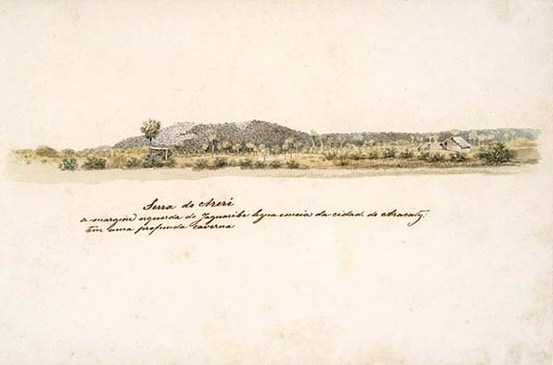 Serra do Areré
a margem esquerda do Jaguaribe legoa emeia da cidade de Aracaty.
tem uma profunda caverna